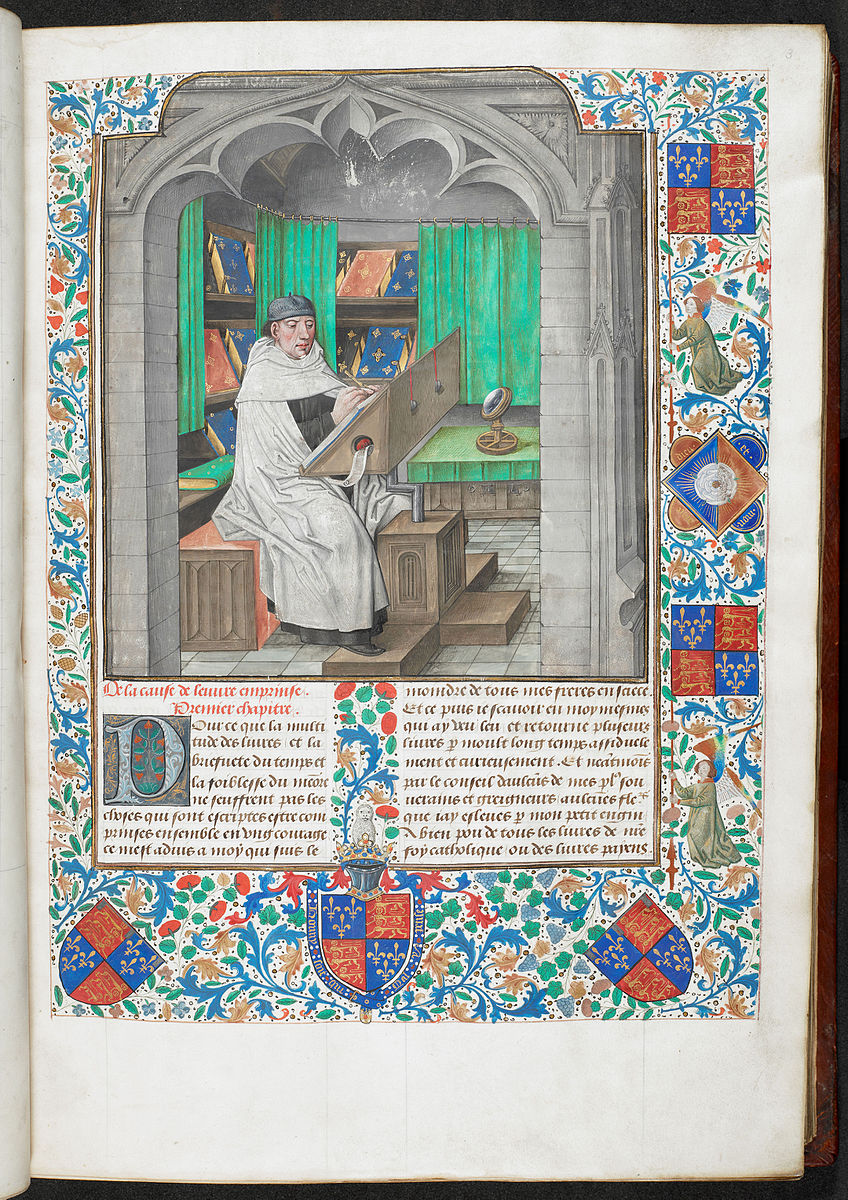 3
De la cause de leuure emprinse.
Premier chapitre.
Pour ce que la multi
tude des liures et la
briefuete du temps et
la foiblesse du
ne seuffrent pas les
choses qui sont escriptes estre com
prinses ensemble en vng courage
ce mest aduis a moy qui suis le
moindre de tous mes freres en
Et ce puis ie scauoir en moy mesmes
qui ay veu leu et retourne
liures p moult long temps assiduele
ment et curieusement. Et
par le conseil de mes sou
uerains et greigneurs aulcunes
que iay esleues p mon petit engin
bien pou de tous les liures de nre
foy catholique ou des liures payens.
dieu et
mon
droit